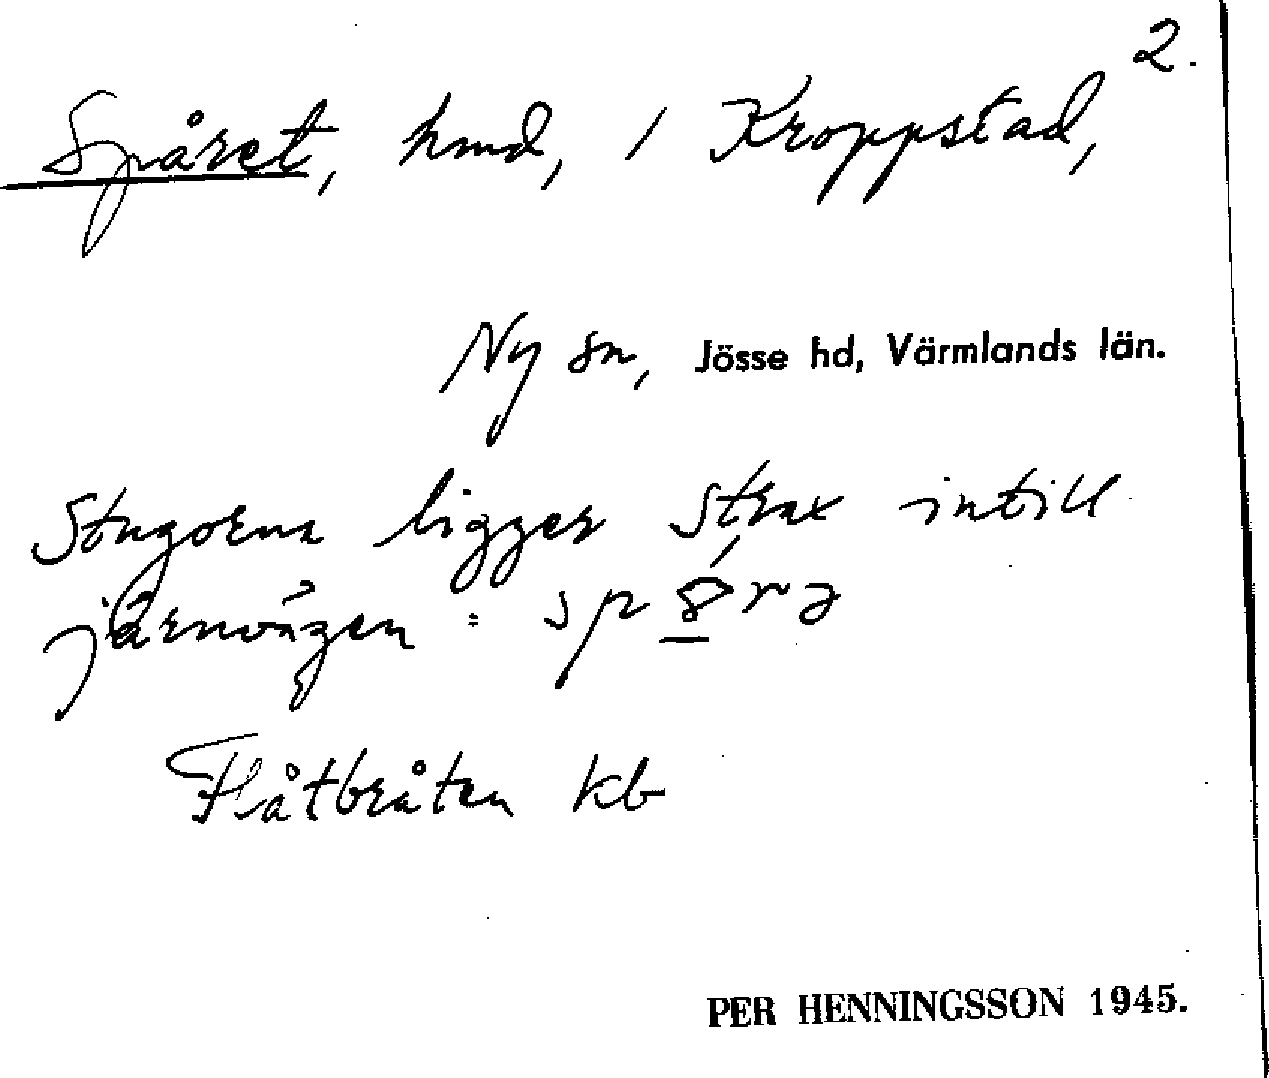 2.
Spåret, hmd, i Kroppstad,
Ny sn, Jösse hd, Värmlands län.
Stugorna ligger strax intill
järnvägen =
Flåtbråten kb
PER HENNINGSSON 1945.